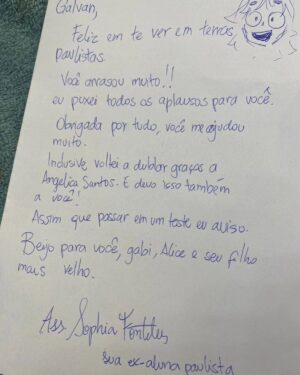 Galvan,
Feliz em te ver em terras
paulistas.
Você arrasou muito!!
eu puxei todos os aplausos para você.
Obrigada por tudo, você me ajudou
muito.
Inclusive voltei a dublar graças a
Angelica Santos. E devo isso também
a você!
Assim que passar em um teste eu aviso.
Beijo para você, gabi, Alice e seu filho
mais velho.
Ass Sophia
sua ex-aluna paulista